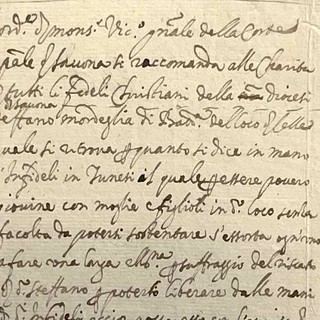 ord.e di mons.r Vic.o gn̄ale della Corte
pale di Savona si raccomanda alle Charita
tutti li fedeli Christiani della dioceti
di Savona
Steffano mordeglia di Batt.a del loco di Celle
quale si ritrova per quanto si dice in mano
d'Infideli in Tuneti al quale per essere povero
giovine con moglie e figlioli in d.o loco senza
facolta da potersi sostentare s'essorta ogn'uno
a fare una larga ell.na per suffraggio del riscatto
di d.o Steffano per poterlo liberare dalle mani